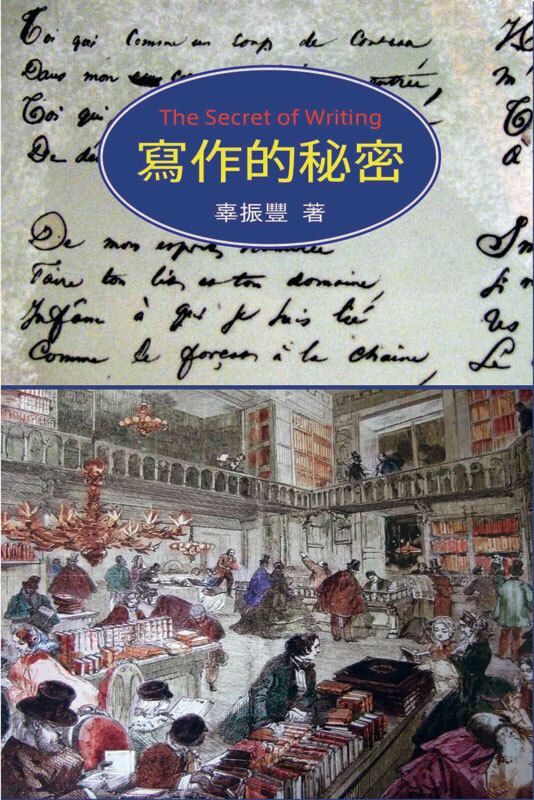 Toi qui comme un coup de couteau
Dans mon
Toi qui
De
The Secret of Writing
寫作的秘密
辜振豐 著
De mon esprit humilié
Faire ton lit et ton domaine,
Infâme à qui je suis lié
Comme le forçat à la chaîne,